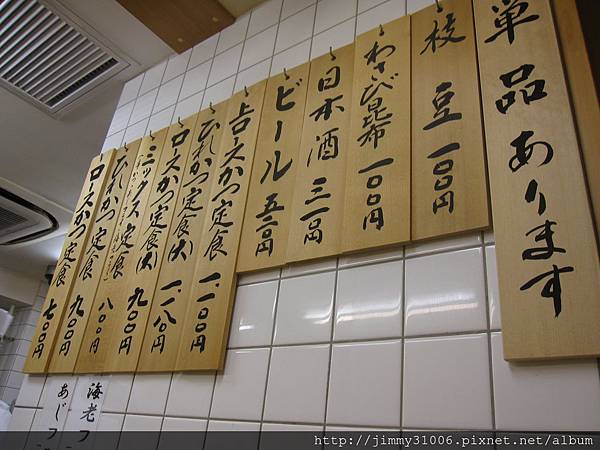 単品あります
枝豆 一〇〇円
わさび昆布 一〇〇円
日本酒 三一〇円
ビール
上ロースかつ定食 一、一〇〇円
ひれかつ定食(大) 一、一八〇円
ロースかつ定食(大) 九〇〇円
ミックス定食 八〇〇円
ひれかつ定食 九〇〇円
ロースかつ定食 七〇〇円
海老フ
あじフ
http://jimmy31006.pixnet.net/album